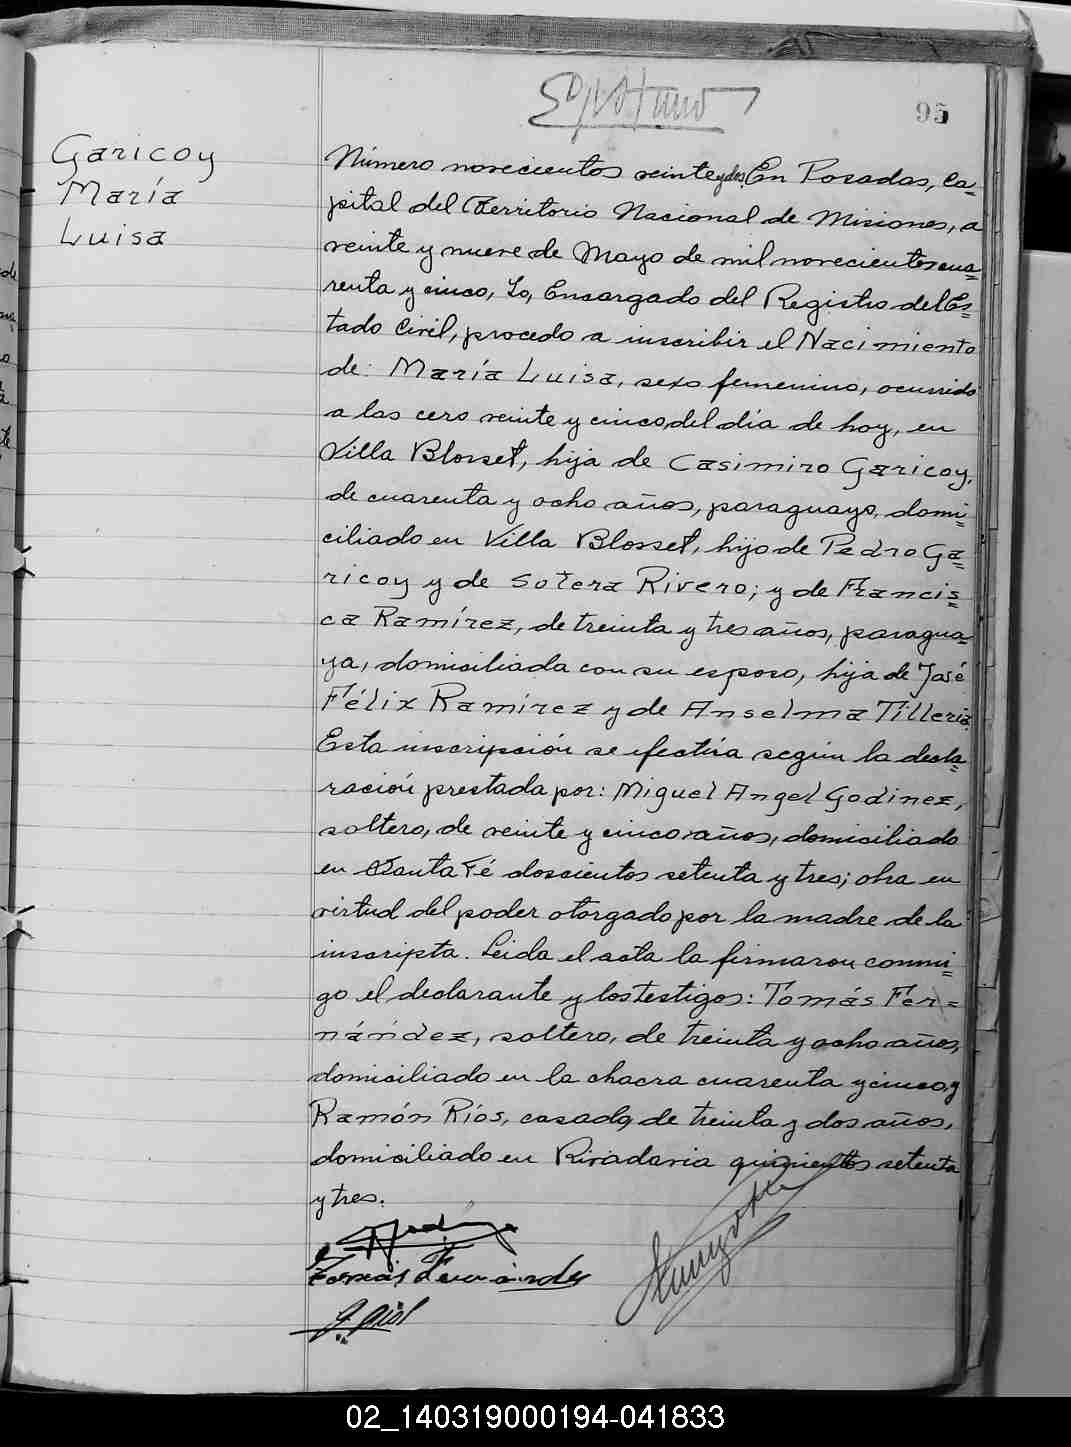 95
Garicoy
María
Luisa
Número novecientos veinte y dos. En Posadas, ca=
pital del Territorio Nacional de Misiones, a
veinte y nueve de Mayo de mil novecientos cua=
renta y cinco, Yo, Encargado del Registro del Es=
tado Civil, procedo a inscribir el Nacimiento
de: María Luisa, sexo femenino, ocurrido
a las cero veinte y cinco, del día de hoy, en
Villa Blosset, hija de Casimiro Garicoy,
de cuarenta y ocho años, paraguayo, domi=
ciliado en Villa Blosset, hijo de Pedro Ga=
ricoy y de Sotera Rivero; y de Francis=
ca Ramírez, de treinta y tres años, paragua=
ya, domiciliada con su esposo, hija de José
Félix Ramírez y de Anselma Tilleria.
Esta inscripción se efectúa según la decla=
ración prestada por: Miguel Angel Godinez,
soltero, de veinte y cinco años, domiciliado
en Santa Fé doscientos setenta y tres; obra en
virtud del poder otorgado por la madre de la
inscripta. Leida el acta la firmaron conmi=
go el declarante y los testigos: Tomás Fer=
nández, soltero, de treinta y ocho años,
domiciliado en la chacra cuarenta y cinco, y
Ramón Ríos, casado, de treinta y dos años,
domiciliado en Rivadavia quinientos setenta
y tres.
Tomás Fernández
02_140319000194-041833